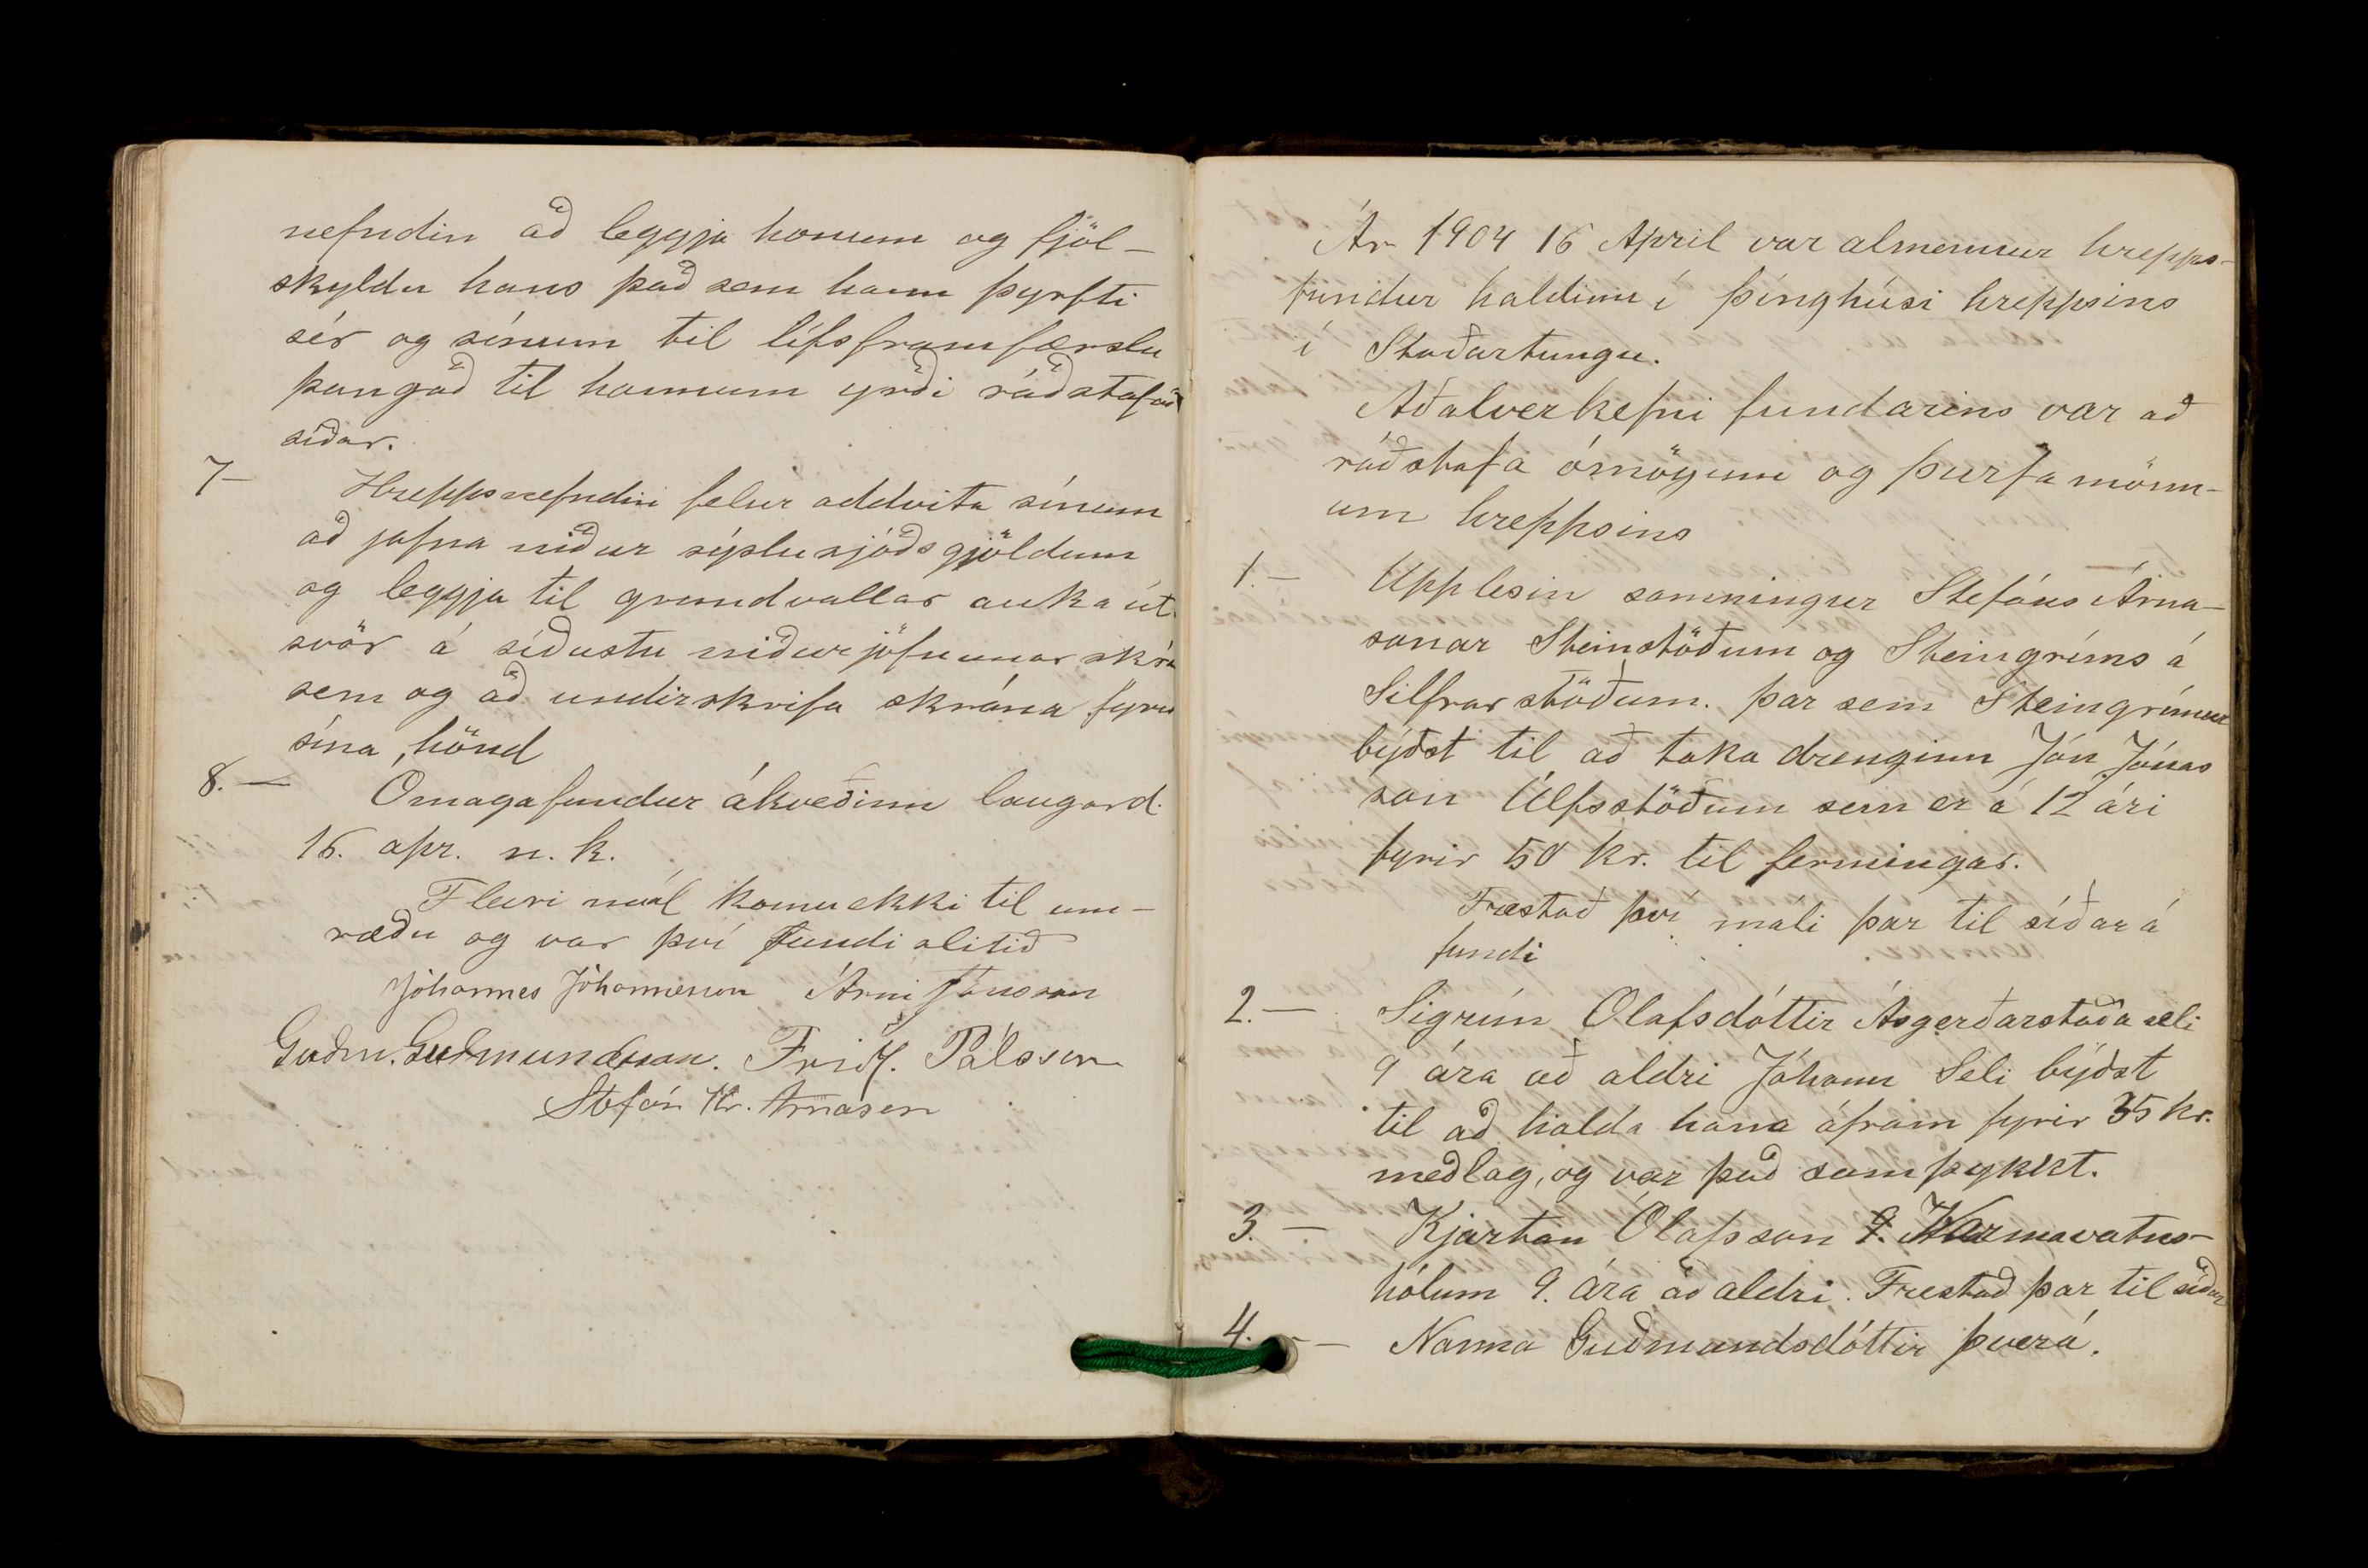 nefndin að leggja honum og fjöl-
skyldu hans það sem hann þyrfti
sér og sínum til lífsframfærslu
þangað til honum yrði ráðstafað
síðar.
7- Hreppsnefndin felur oddvita sínum
að jafna niður sýslusjóðsgjöldum
og leggja til grundvallar aukaút-
svör á síðustu niðurjöfnunar skrá
sem og að undirskrifa skrána fyrir
sína hönd
8. - Ómagafundur ákveðinn laugard.
16. apr. n. k.
Fleiri mál komu ekki til um-
ræðu og var því fundi slitið
Jóhannes Jóhannesson Árni Jónsson
Guðm. Guðmundsson. Friðf. Pálsson
Stefán Kr. Árnason
Ár 1904 16 April var almennur hrepps-
fundur haldinn í þinghúsi hreppsins
í Staðartungu.
Aðalverkefni fundarins var að
ráðstafa ómögum og þurfamönn-
um hreppsins
1. - Upplesin samningur Stefáns Árna-
sonar Steinstöðum og Steingríms á
Silfrarstöðum. þar sem Steingrímur
býðst til að taka drenginn Jón Jónas
son Úlfsstöðum sem er á 12 ári
fyrir 50 kr. til fermingar.
Frestað því máli þar til síðar á
fundi
2. - Sigrún Olafsdóttir Ásgerðarstaðaseli
9 ára að aldri Jóhann Seli býðst
til að halda hana áfram fyrir 35 kr.
meðlag, og var það samþykkt.
3. - Kjartan Ólafsson Varmavatns-
hólum 9. ára að aldri. Frestað þar til síðar
4. - Nanna Guðmundsdóttir þverá.